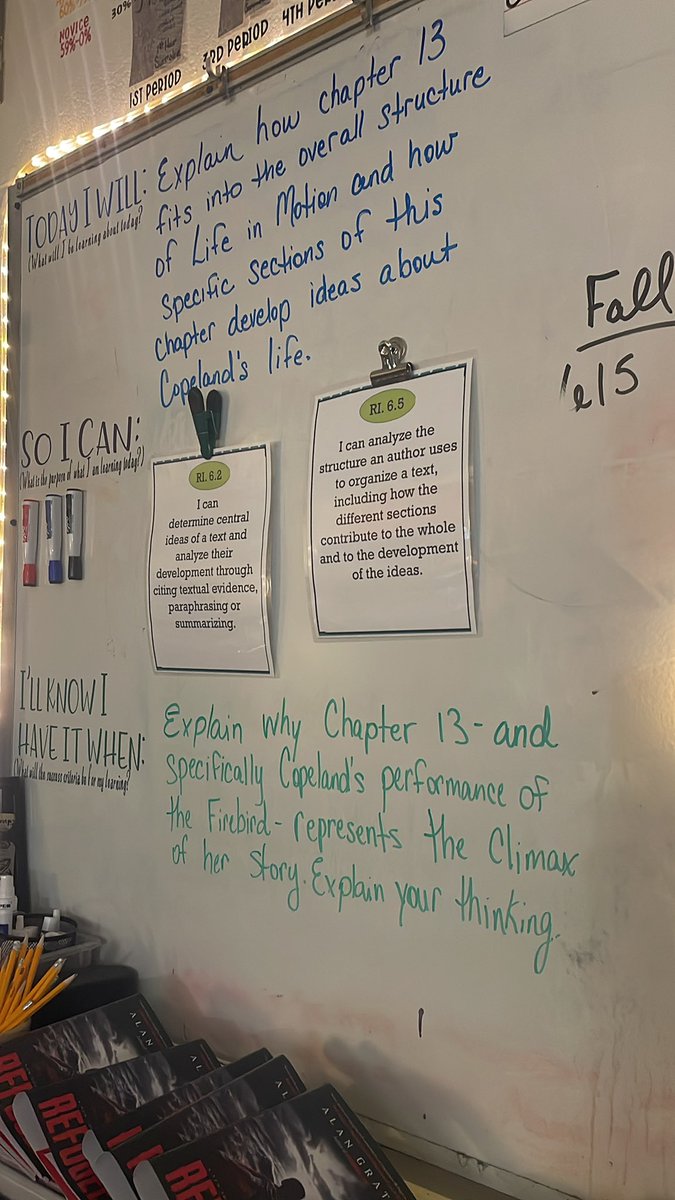 NOVICE
59%-0%
30%
1ST PERIOD
3RD PERIOD
4TH PER
TODAY I WILL:
(What will I be learning about today?)
Explain how chapter 13
fits into the overall structure
of Life in Motion and how
specific sections of this
chapter develop ideas about
Copeland's life.
Fall
SO I CAN:
(What is the purpose of what I am learning today?)
RI. 6.2
I can
determine central
ideas of a text and
analyze their
development through
citing textual evidence,
paraphrasing or
summarizing.
RI. 6.5
I can analyze the
structure an author uses
to organize a text,
including how the
different sections
contribute to the whole
and to the development
of the ideas.
I'LL KNOW I
HAVE IT WHEN:
(What will the success criteria be for my learning?
Explain why Chapter 13-and
specifically Copeland's performance of
the Firebird-represents the Climax
of her Story. Explain your thinking.
ALAN
REFU
REFUG
ALAN GRAT
RE